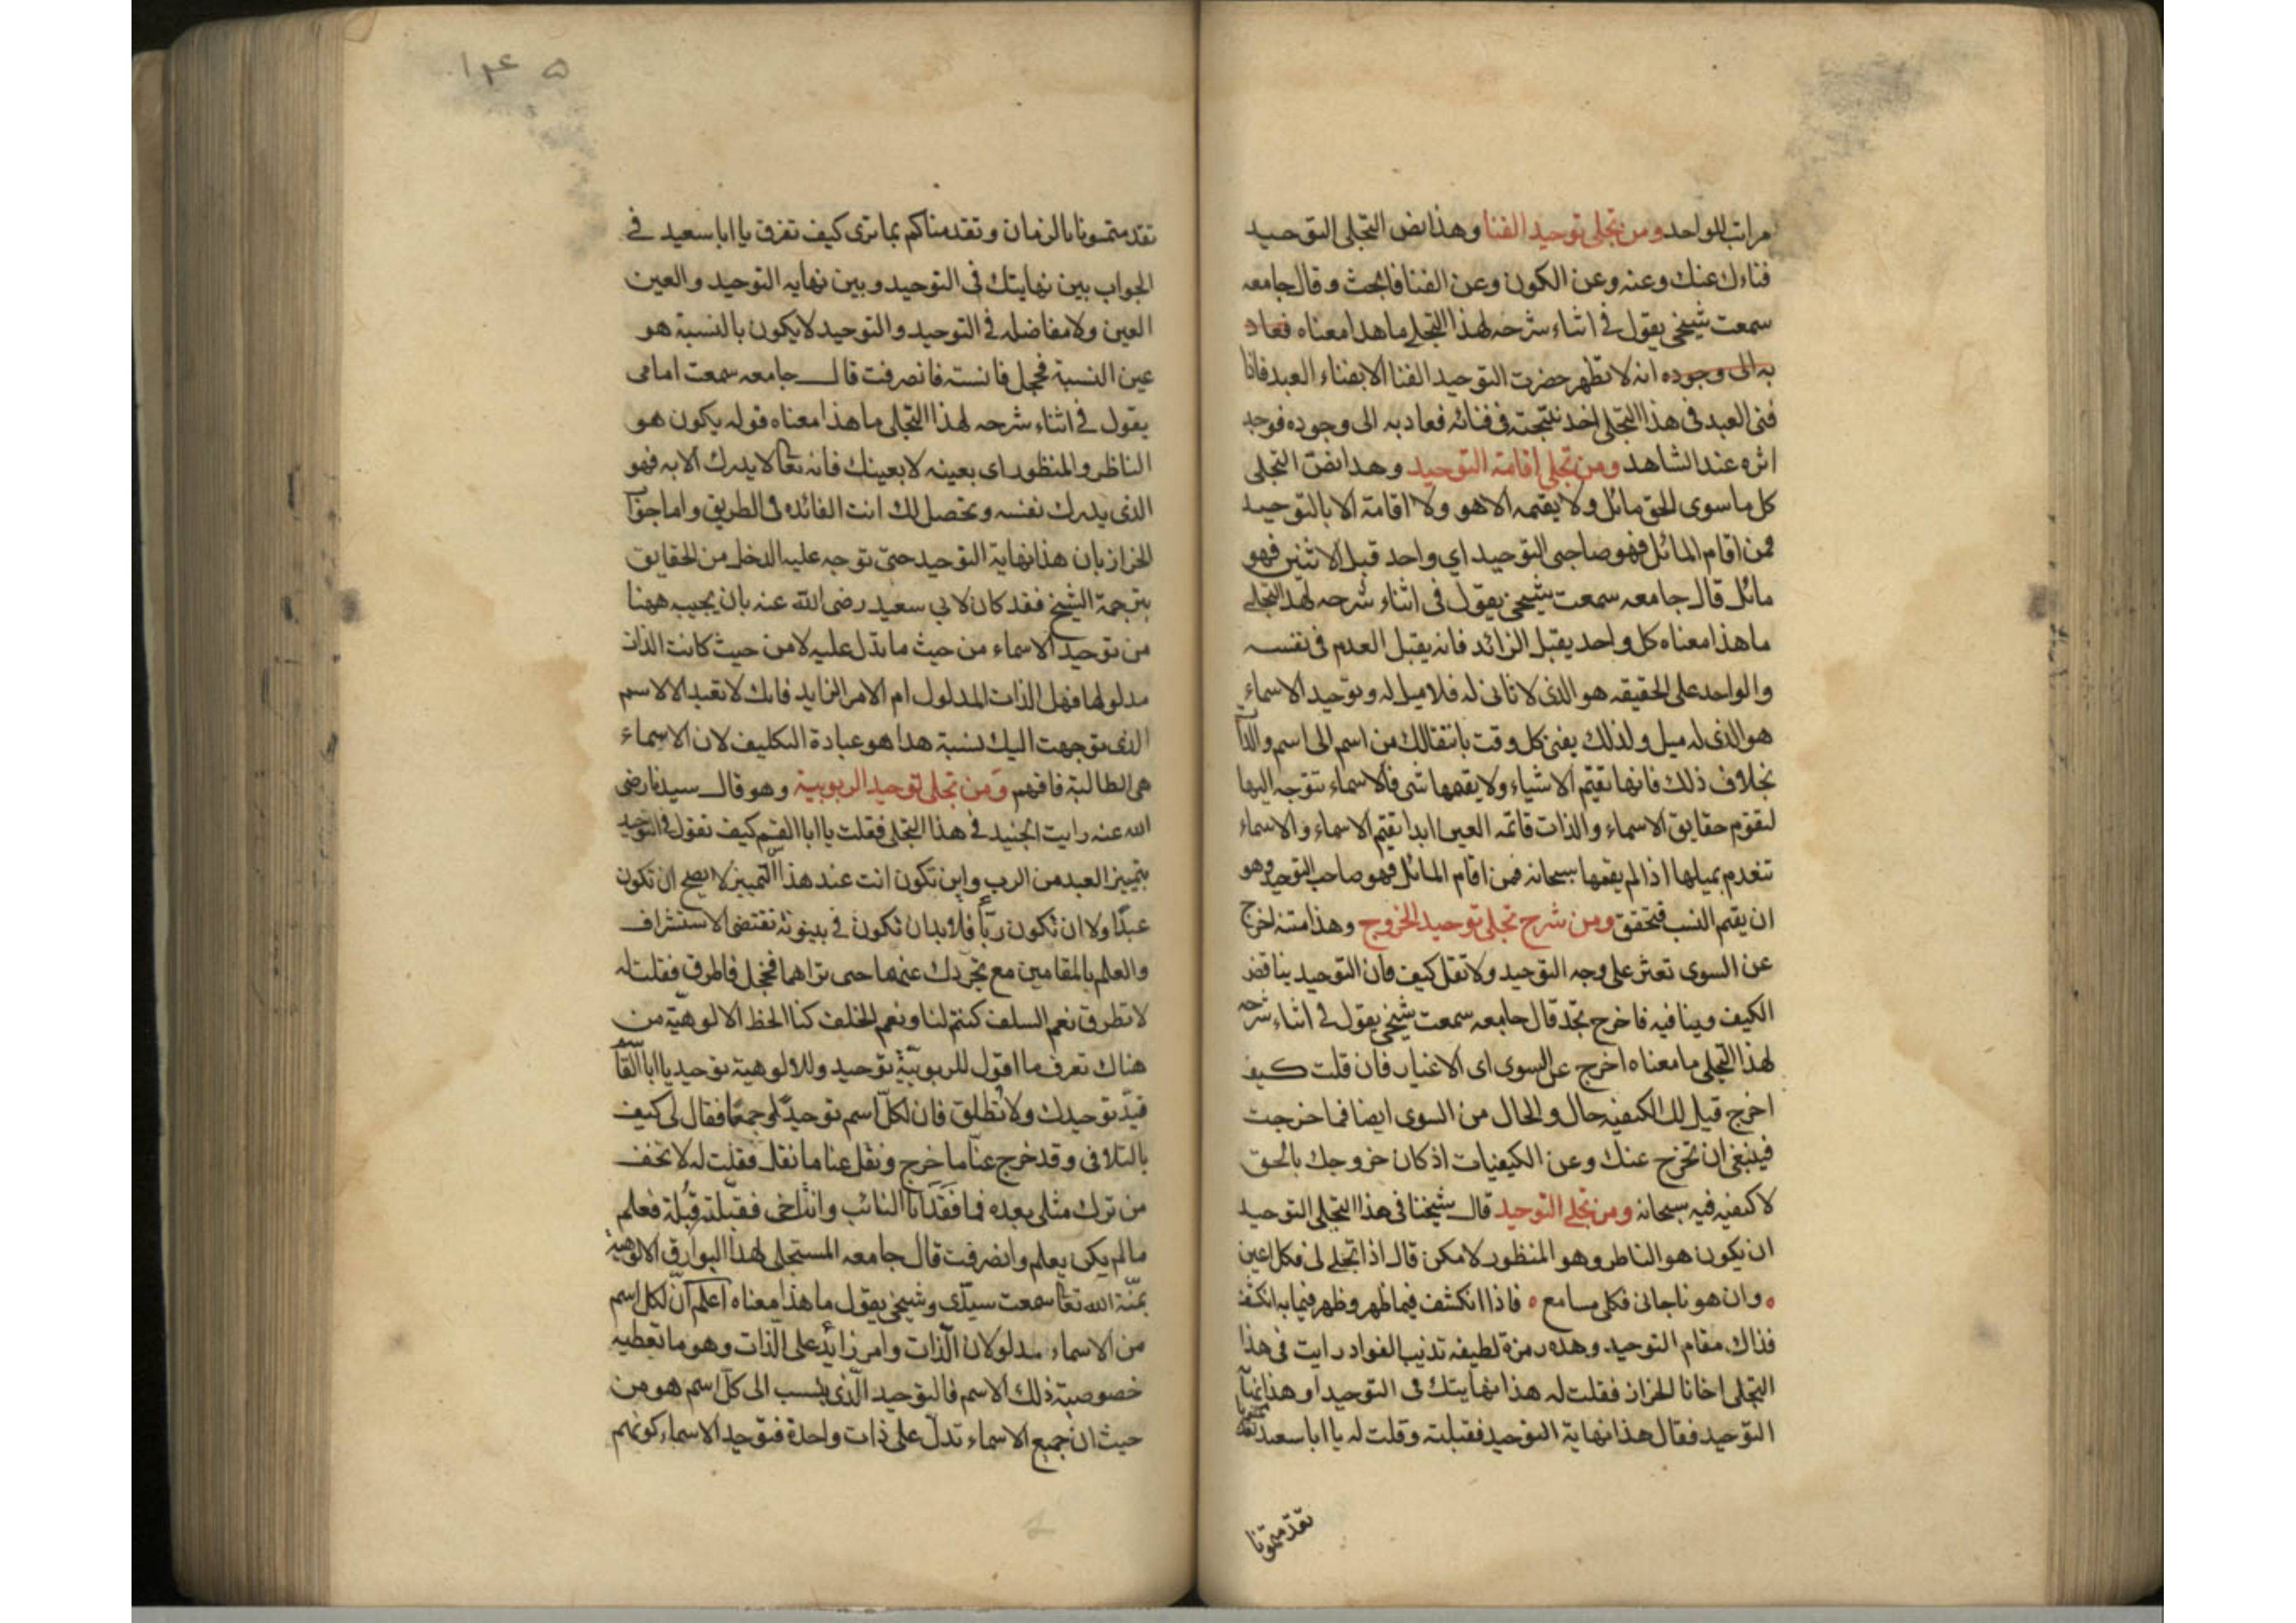 مراتب للواحد ومن تجلى توحيد الفنا وهذا نص التجلى التوحيد
فناءك عنك وعنه وعن الكون وعن الفنا فابحث وقال جامعه
سمعت شيخى يقول فى اثناء شرحه لهذا التجلى ما هذا معناه فعاد
به الى وجوده انه لا تظهر حضرت التوحيد الفنا الا بفناء العبد فاذا
فنى العبد فى هذا التجلى اخذ نتيجته فى فنائه فعاد به الى وجوده فوجد
اثره عند الشاهد ومن تجلى اقامة التوحيد وهذا نص التجلى
كل ما سوى الحق مائل ولا يقيمه الا هو ولا اقامة الا بالتوحيد
فمن اقام المائل فهو صاحب التوحيد اي واحد قبل الاثنين فهو
مائل قال جامعه سمعت شيخى يقول فى اثناء شرحه لهذا التجلى
ما هذا معناه كل واحد يقبل الزائد فانه يقبل العدم فى نفسه
والواحد على الحقيقه هو الذى لا ثانى له فلا ميل له وتوحيد الاسماء
هو الذى له ميل ولذلك يفنى كل وقت بانتقالك من اسم الى اسم والذا
بخلاف ذلك فانها تقيم الاشياء ولا يقيمها شى فالاسماء تتوجه اليها
لتقوم حقايق الاسماء والذات قائمه العين ابدا تقيم الاسماء والاسماء
تنعدم بميلها اذا لم يقمها سبحانه فمن اقام المائل فهو صاحب التوحيد وهو
ان يقيم النسب فتحقق ومن شرح تجلى توحيد الخروج وهذا متنه اخرج
عن السوى تعثر على وجه التوحيد ولا تقل كيف فان التوحيد يناقض
الكيف وينافيه فاخرج تجد قال جامعه سمعت شيخى يقول فى اثناء شرحه
لهذا التجلى ما معناه اخرج عن السوى اى الاغيار فان قلت كيف
اخرج قيل لك الكيفيه حال والحال من السوى ايضا فما خرجت
فينبغى ان تخرج عنك وعن الكيفيات اذ كان خروجك بالحق
لا كيفيه فيه سبحانه ومن تجلى التوحيد قال شيخنا فى هذا التجلى التوحيد
ان يكون هو الناظر وهو المنظور لا مكن قال اذا تجلى لى فكلى اعين
وان هو ناجانى فكلى مسامع فاذا انكشف فيما ظهر وظهر فيما به انكشف
فذاك مقام التوحيد وهذه رمزة لطيفه تذيب الفواد رايت فى هذا
التجلى اخانا الخراز فقلت له هذا نهايتك فى التوحيد او هذا نهاية
التوحيد فقال هذا نهاية التوحيد فقبلته وقلت له يا ابا سعيد
تقدمتمونا
١٤٥
تقدمتمونا بالزمان وتقدمناكم بما ترى كيف تفرق يا ابا سعيد فى
الجواب بين نهايتك فى التوحيد وبين نهايه التوحيد والعين
العين ولا مفاضله فى التوحيد والتوحيد لا يكون بالنسبة هو
عين النسبة فخجل فانسته فانصرفت قال جامعه سمعت امامى
يقول فى اثناء شرحه لهذا التجلى ما هذا معناه قوله يكون هو
الناظر والمنظور اى بعينه لا بعينك فانه تعا لا يدرك الا به فهو
الذى يدرك نفسه وتحصل لك انت الفائده فى الطريق واما جواب
الخراز بان هذا نهاية التوحيد حتى توجه عليه الدخل من الحقايق
بترجمة الشيخ فقد كان لابي سعيد رضى الله عنه بان يجيب ههنا
من توحيد الاسماء من حيث ما تدل عليه لا من حيث كانت الذات
مدلولها فهل الذات المدلول ام الامر الزايد فانك لا تعبد الا الاسم
الذى توجهت اليك نسبة هذا هو عبادة التكليف لان الاسماء
هى الطالبة فافهم ومن تجلى توحيد الربوبية وهو قال سيدنا رضى
الله عنه رايت الجنيد فى هذا التجلى فقلت يا ابا القسم كيف تقول فى التوحيد
بتمييز العبد من الرب واين تكون انت عند هذا التمييز لا يصح ان تكون
عبدًا ولا ان تكون ربًا فلا بد ان تكون فى بينونة تقتضى الاستشراف
والعلم بالمقامين مع تجردك عنهما حتى تراهما فخجل فاطرق فقلت له
لا تطرق نعم السلف كنتم لنا ونعم الخلف كنا الحظ الالوهية من
هناك تعرف ما اقول للربوبية توحيد وللالوهية توحيد يا ابا القا
قيّد توحيدك ولا تطلق فان لكلّ اسم توحيدًا وجمعًا فقال لى كيف
بالتلافى وقد خرج عنّا ما خرج ونقل عنا ما نقل فقلت له لا تخف
من ترك مثلى بعده فما فقد انا النائب وانت اخى فقبلته قبلة فعلم
ما لم يكن يعلم وانصرفت قال جامعه المستجلى لهذا البوارق الالوهية
بمنّة الله تعا سمعت سيدى وشيخى يقول ما هذا معناه اعلم انّ لكل اسم
من الاسماء مدلولان الذات وامر زائد على الذات وهو ما تعطيه
خصوصية ذلك الاسم فالتوحيد الذى ينسب الى كلّ اسم هو من
حيث ان جميع الاسماء تدلّ على ذات واحدة فتوحيد الاسماء كونهم